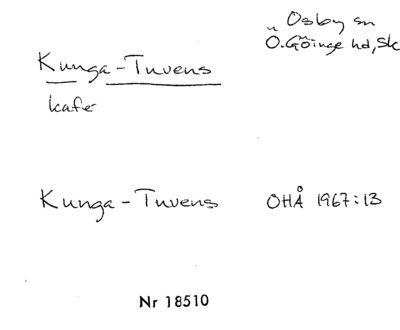 Osby sn
Ö. Göinge hd, Sk
Kunga-Tuvens
kafé
Kunga-Tuvens OHÅ 1967:13
Nr 18510